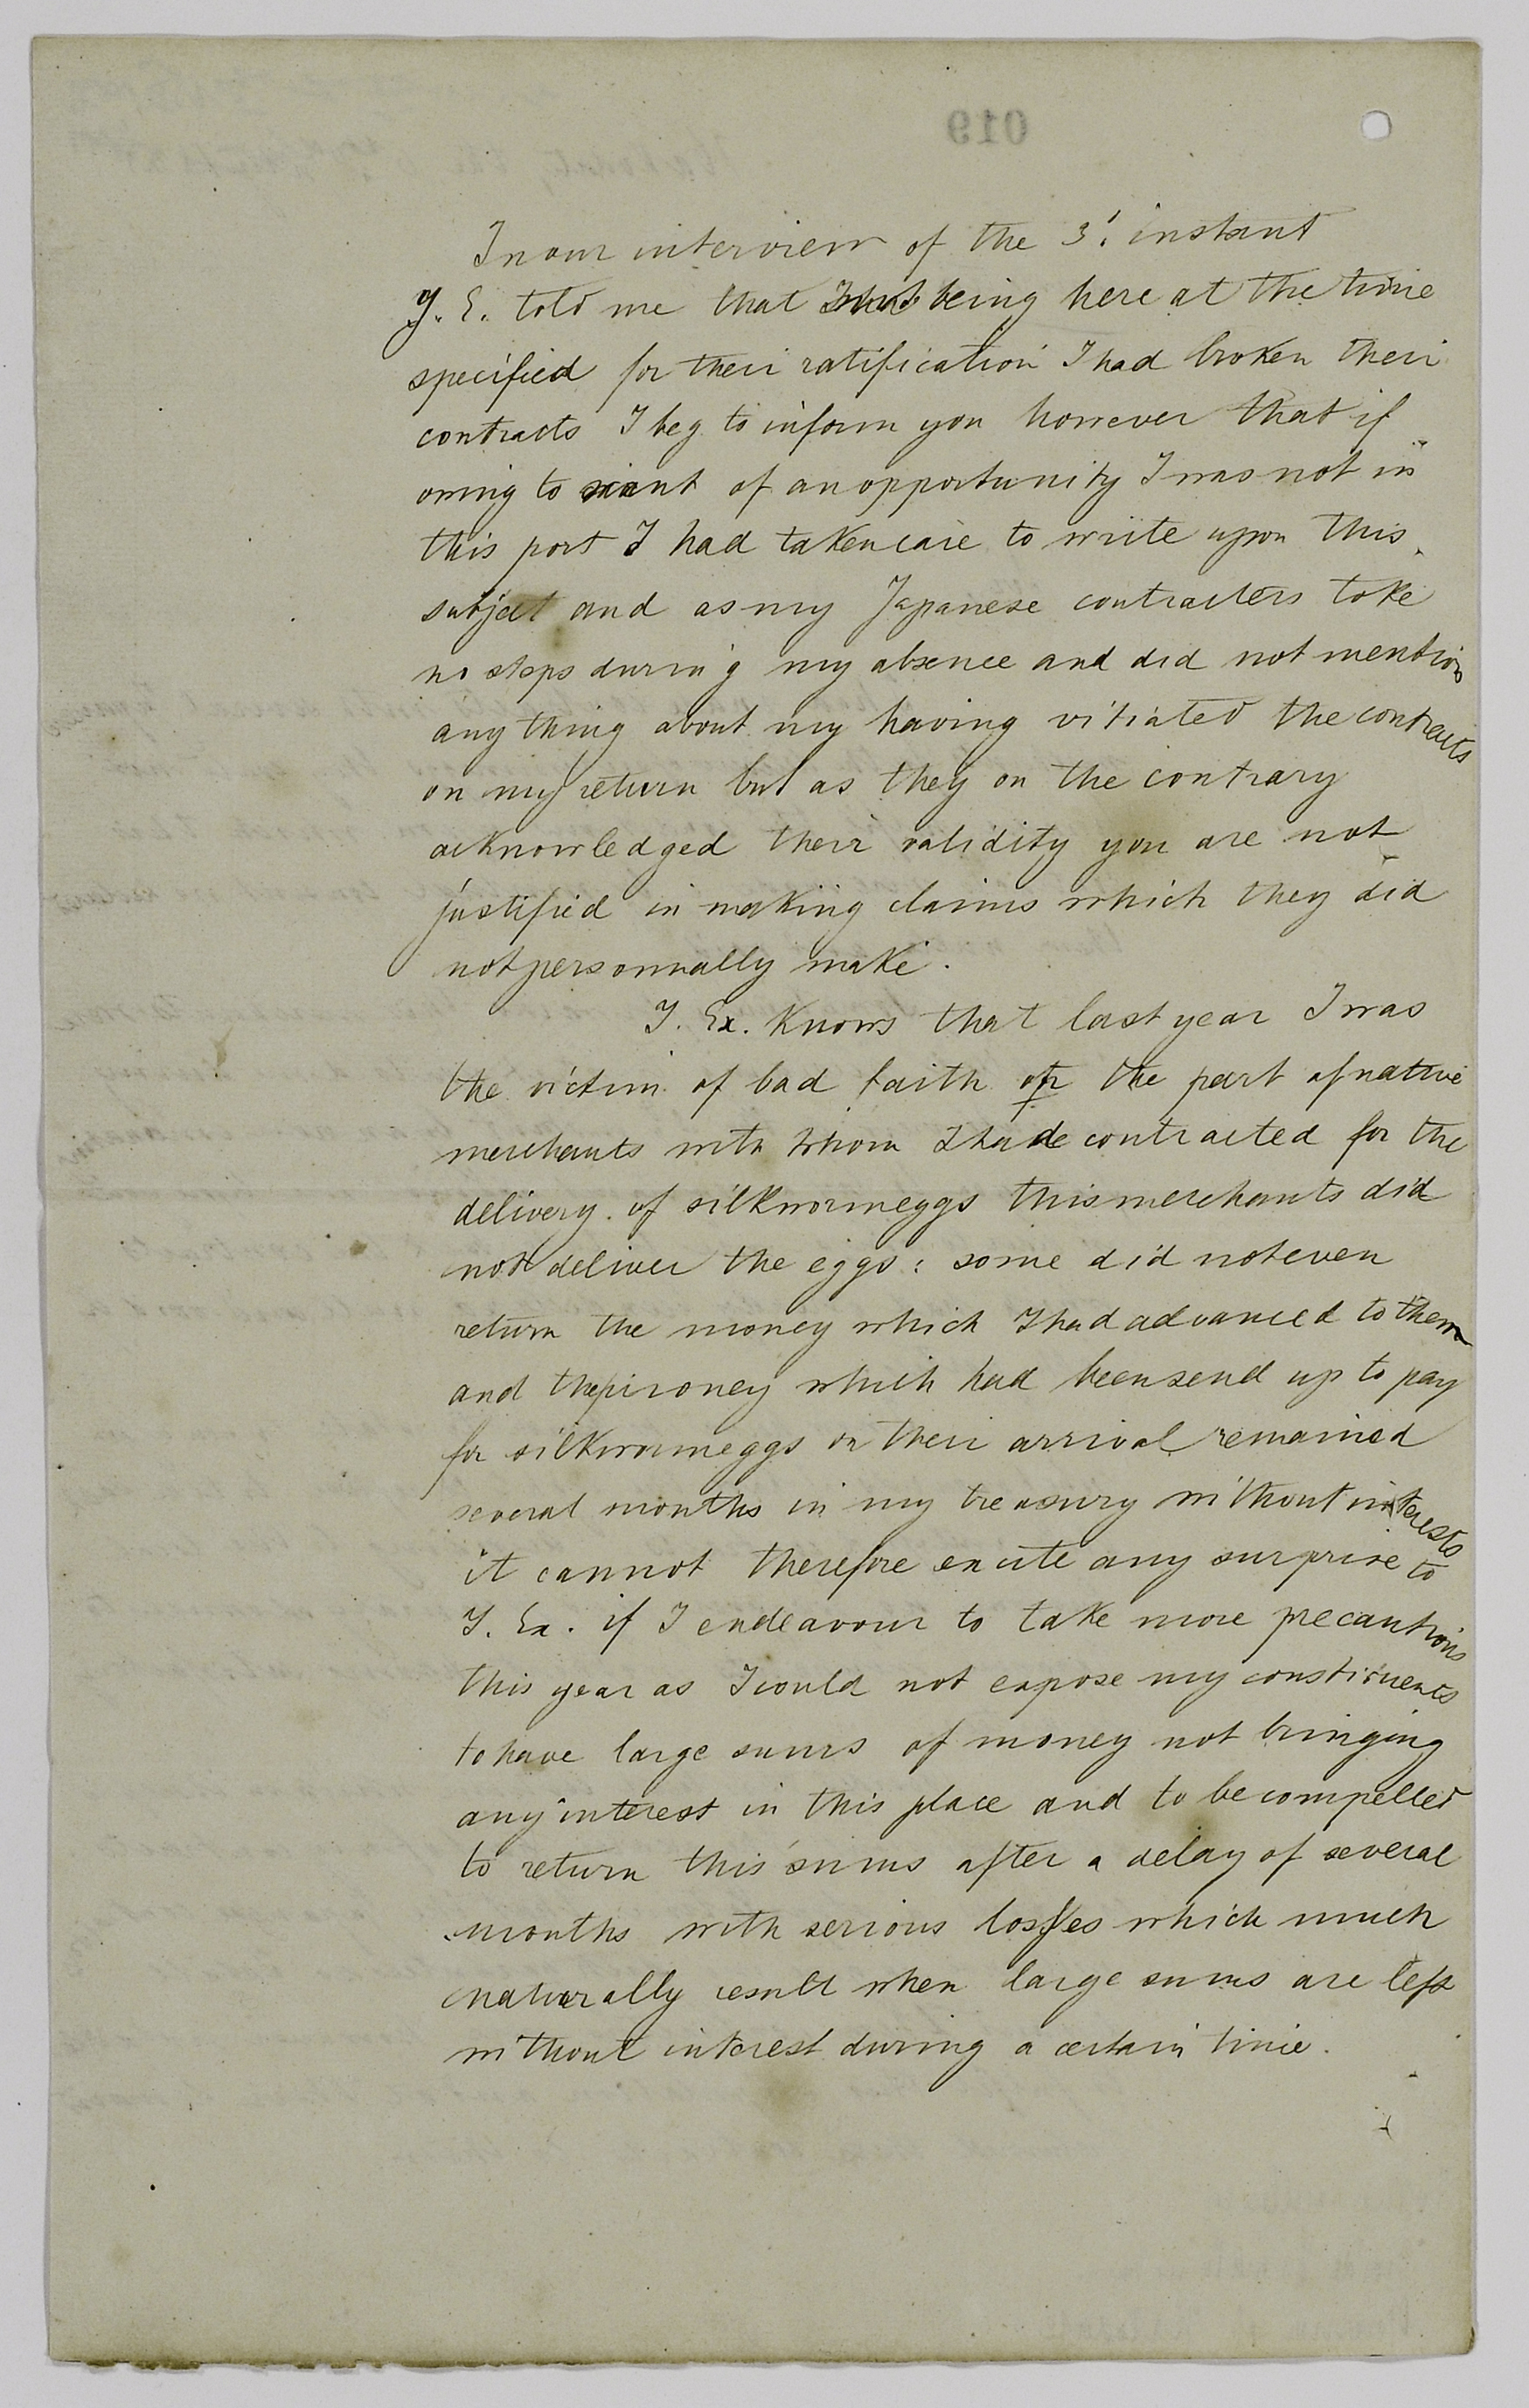 019
In our interview of the 3' instant
Y. E. told me that not being here at the time
specified for their ratification I had broken their
contracts I beg to inform you however that if
owing to want of an opportunity I was not in
this port I had taken care to write upon this
subject and as my Japanese contracters toke
no steps during my absence and did not mention
any thing about my having vitiated the contracts
on my return but as they on the contrary
acknowledged their validity you are not
justified in making claims which they did
not personnally make.
Y. Ex. Knows that last year I was
the victim of bad faith on the part of native
merchants with whom I hade contracted for the
delivery of silkwormeggs this merchants did
not deliver the eggs: some did not even
return the money which I had advanced to them
and the money which had been send up to pay
for silkwormeggs on their arrival remained
several months in my treasury without interests
it cannot therefore excite any surprise to
Y. Ex. if I endeavour to take more precautions
this year as I would not expose my constituents
to have large sums of money not bringing
any interest in this place and to be compelled
to return this sums after a delay of several
months with serious losses which much
naturally result when large sums are left
without interest during a certain time.